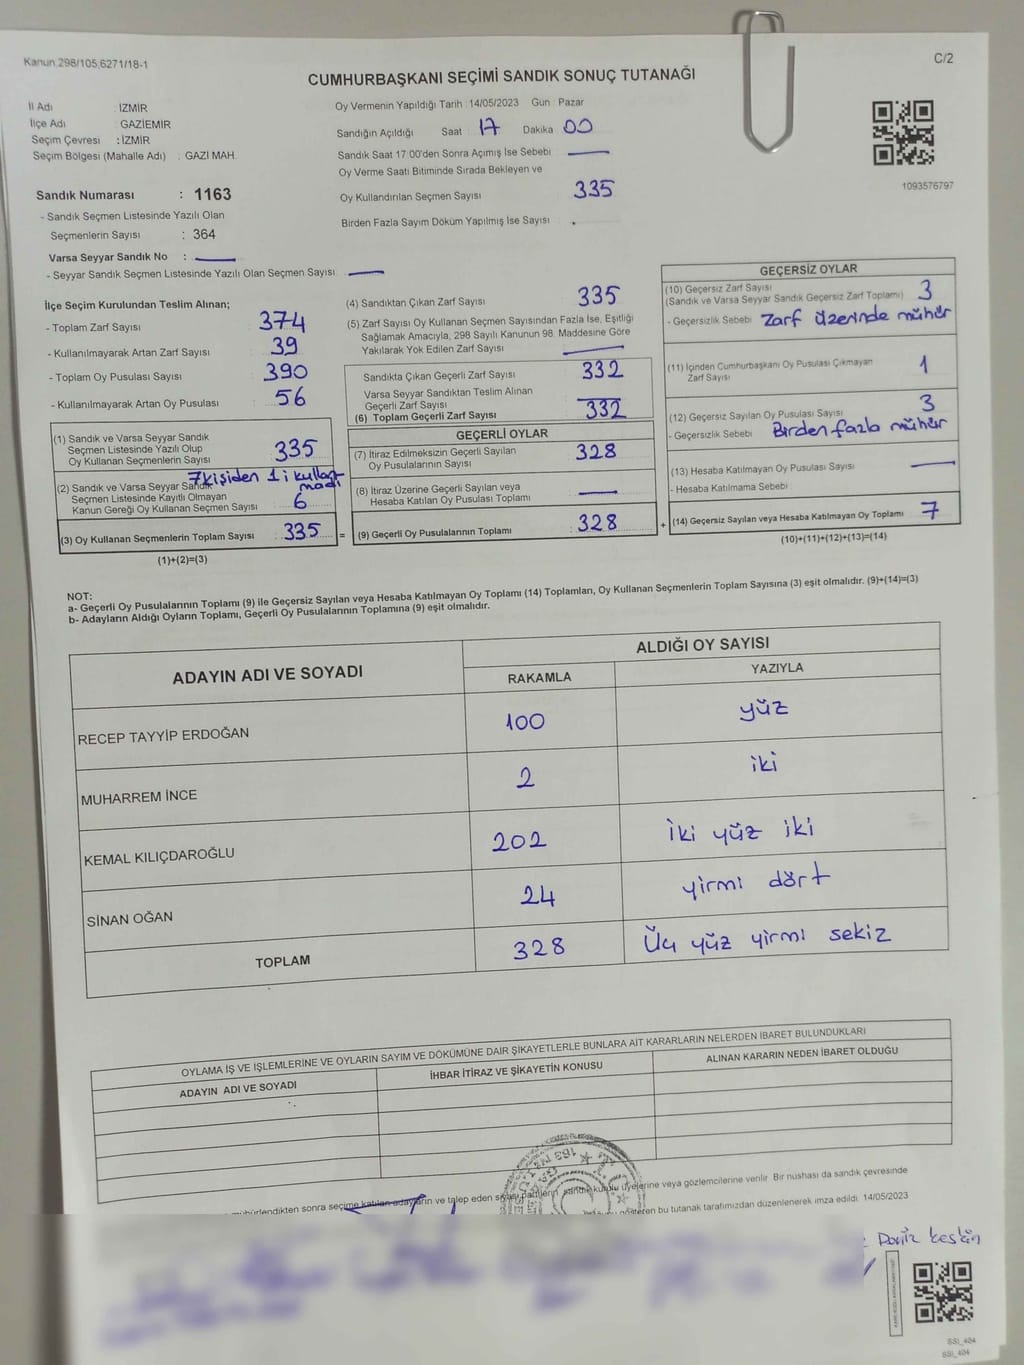 Kanun 298/105,6271/18-1
C/2
CUMHURBAŞKANI SEÇİMİ SANDIK SONUÇ TUTANAĞI
İl Adı : İZMİR
İlçe Adı : GAZİEMİR
Seçim Çevresi : İZMİR
Seçim Bölgesi (Mahalle Adı) : GAZİ MAH.
Oy Vermenin Yapıldığı Tarih : 14/05/2023 Gün : Pazar
Sandığın Açıldığı Saat 17 Dakika 00
Sandık Saat 17:00'den Sonra Açımış İse Sebebi
Oy Verme Saati Bitiminde Sırada Bekleyen ve
Oy Kullandırılan Seçmen Sayısı 335
Birden Fazla Sayım Döküm Yapılmış İse Sayısı
1093576797
Sandık Numarası : 1163
- Sandık Seçmen Listesinde Yazılı Olan
Seçmenlerin Sayısı : 364
Varsa Seyyar Sandık No :
- Seyyar Sandık Seçmen Listesinde Yazılı Olan Seçmen Sayısı
İlçe Seçim Kurulundan Teslim Alınan;
- Toplam Zarf Sayısı : 374
- Kullanılmayarak Artan Zarf Sayısı : 39
- Toplam Oy Pusulası Sayısı : 390
- Kullanılmayarak Artan Oy Pusulası : 56
(1) Sandık ve Varsa Seyyar Sandık
Seçmen Listesinde Yazılı Olup
Oy Kullanan Seçmenlerin Sayısı : 335
7 kişiden 1 i kullan
madı
(2) Sandık ve Varsa Seyyar Sandık
Seçmen Listesinde Kayıtlı Olmayan
Kanun Gereği Oy Kullanan Seçmen Sayısı : 6
(3) Oy Kullanan Seçmenlerin Toplam Sayısı : 335
(1)+(2)=(3)
(4) Sandıktan Çıkan Zarf Sayısı 335
(5) Zarf Sayısı Oy Kullanan Seçmen Sayısından Fazla İse, Eşitliği
Sağlamak Amacıyla, 298 Sayılı Kanunun 98. Maddesine Göre
Yakılarak Yok Edilen Zarf Sayısı
Sandıkta Çıkan Geçerli Zarf Sayısı 332
Varsa Seyyar Sandıktan Teslim Alınan
Geçerli Zarf Sayısı
(6) Toplam Geçerli Zarf Sayısı 332
GEÇERLİ OYLAR
(7) İtiraz Edilmeksizin Geçerli Sayılan
Oy Pusulalarının Sayısı : 328
(8) İtiraz Üzerine Geçerli Sayılan veya
Hesaba Katılan Oy Pusulası Toplamı
= (9) Geçerli Oy Pusulalarının Toplamı : 328
GEÇERSİZ OYLAR
(10) Geçersiz Zarf Sayısı
(Sandık ve Varsa Seyyar Sandık Geçersiz Zarf Toplamı) 3
- Geçersizlik Sebebi : Zarf üzerinde mühür
(11) İçinden Cumhurbaşkanı Oy Pusulası Çıkmayan
Zarf Sayısı 1
(12) Geçersiz Sayılan Oy Pusulası Sayısı 3
- Geçersizlik Sebebi : Birden fazla mühür
(13) Hesaba Katılmayan Oy Pusulası Sayısı
- Hesaba Katılmama Sebebi
+ (14) Geçersiz Sayılan veya Hesaba Katılmayan Oy Toplamı : 7
(10)+(11)+(12)+(13)=(14)
NOT:
a- Geçerli Oy Pusulalarının Toplamı (9) ile Geçersiz Sayılan veya Hesaba Katılmayan Oy Toplamı (14) Toplamları, Oy Kullanan Seçmenlerin Toplam Sayısına (3) eşit olmalıdır. (9)+(14)=(3)
b- Adayların Aldığı Oyların Toplamı, Geçerli Oy Pusulalarının Toplamına (9) eşit olmalıdır.
ADAYIN ADI VE SOYADI
ALDIĞI OY SAYISI
RAKAMLA YAZIYLA
RECEP TAYYİP ERDOĞAN 100 yüz
MUHARREM İNCE 2 iki
KEMAL KILIÇDAROĞLU 202 iki yüz iki
SİNAN OĞAN 24 yirmi dört
TOPLAM 328 Üç yüz yirmi sekiz
OYLAMA İŞ VE İŞLEMLERİNE VE OYLARIN SAYIM VE DÖKÜMÜNE DAİR ŞİKAYETLERLE BUNLARA AİT KARARLARIN NELERDEN İBARET BULUNDUKLARI
ADAYIN ADI VE SOYADI İHBAR İTİRAZ VE ŞİKAYETİN KONUSU ALINAN KARARIN NEDEN İBARET OLDUĞU
mühürlendikten sonra seçime katılan adayların ve talep eden siyasi partilerin sandık kurulu üyelerine veya gözlemcilerine verilir. Bir nüshası da sandık çevresinde
gösteren bu tutanak tarafımızdan düzenlenerek imza edildi. 14/05/2023
: Deniz keskin
SSİ_404
SSİ_404